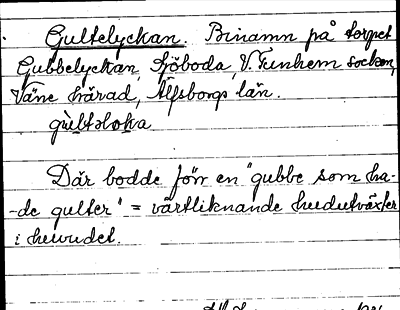 Gultelyckan. Binamn på torpet
Gubbelyckan, Sjöboda, V. Tunhem socken,
Väne härad, Älfsborgs län.
gùltəlo̵ka
Där bodde förr en "gubbe som ha-
-de gulter" = vårtliknande hudutväxter
i huvudet.